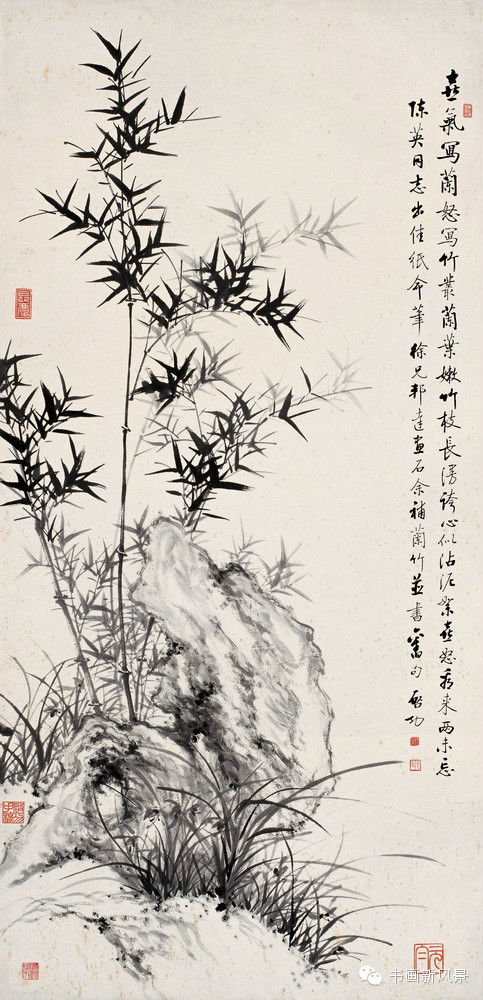 喜氣寫蘭怒寫竹叢蘭葉嫩竹枝長漫誇心似沾泥絮喜怒看來兩未忘
陳英同志出佳紙命筆徐兄邦達畫石余補蘭竹並書舊句啟功
书画新风景